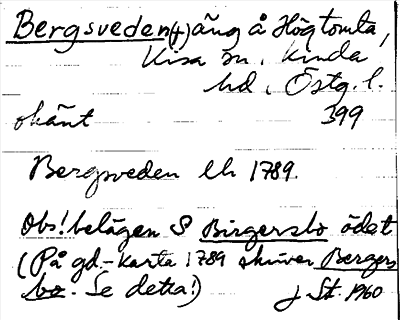 Bergsveden(†) äng å Högtomta,
Kisa sn, Kinda
hd, Östg. l.
okänt 399
Bergsveden lh 1789.
Obs! belägen S Birgersbo ödet
(På gd.-karta 1789 skriver Bergers
bo. Se detta!) J St. 1960